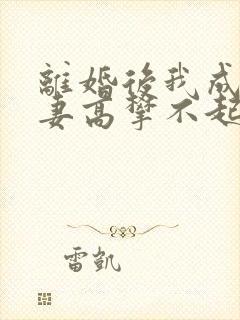 離婚後我成
妻高攀不起
雷凱